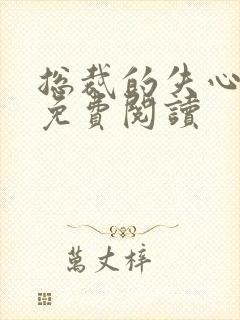 总裁的失心
免費閱讀
萬丈梓